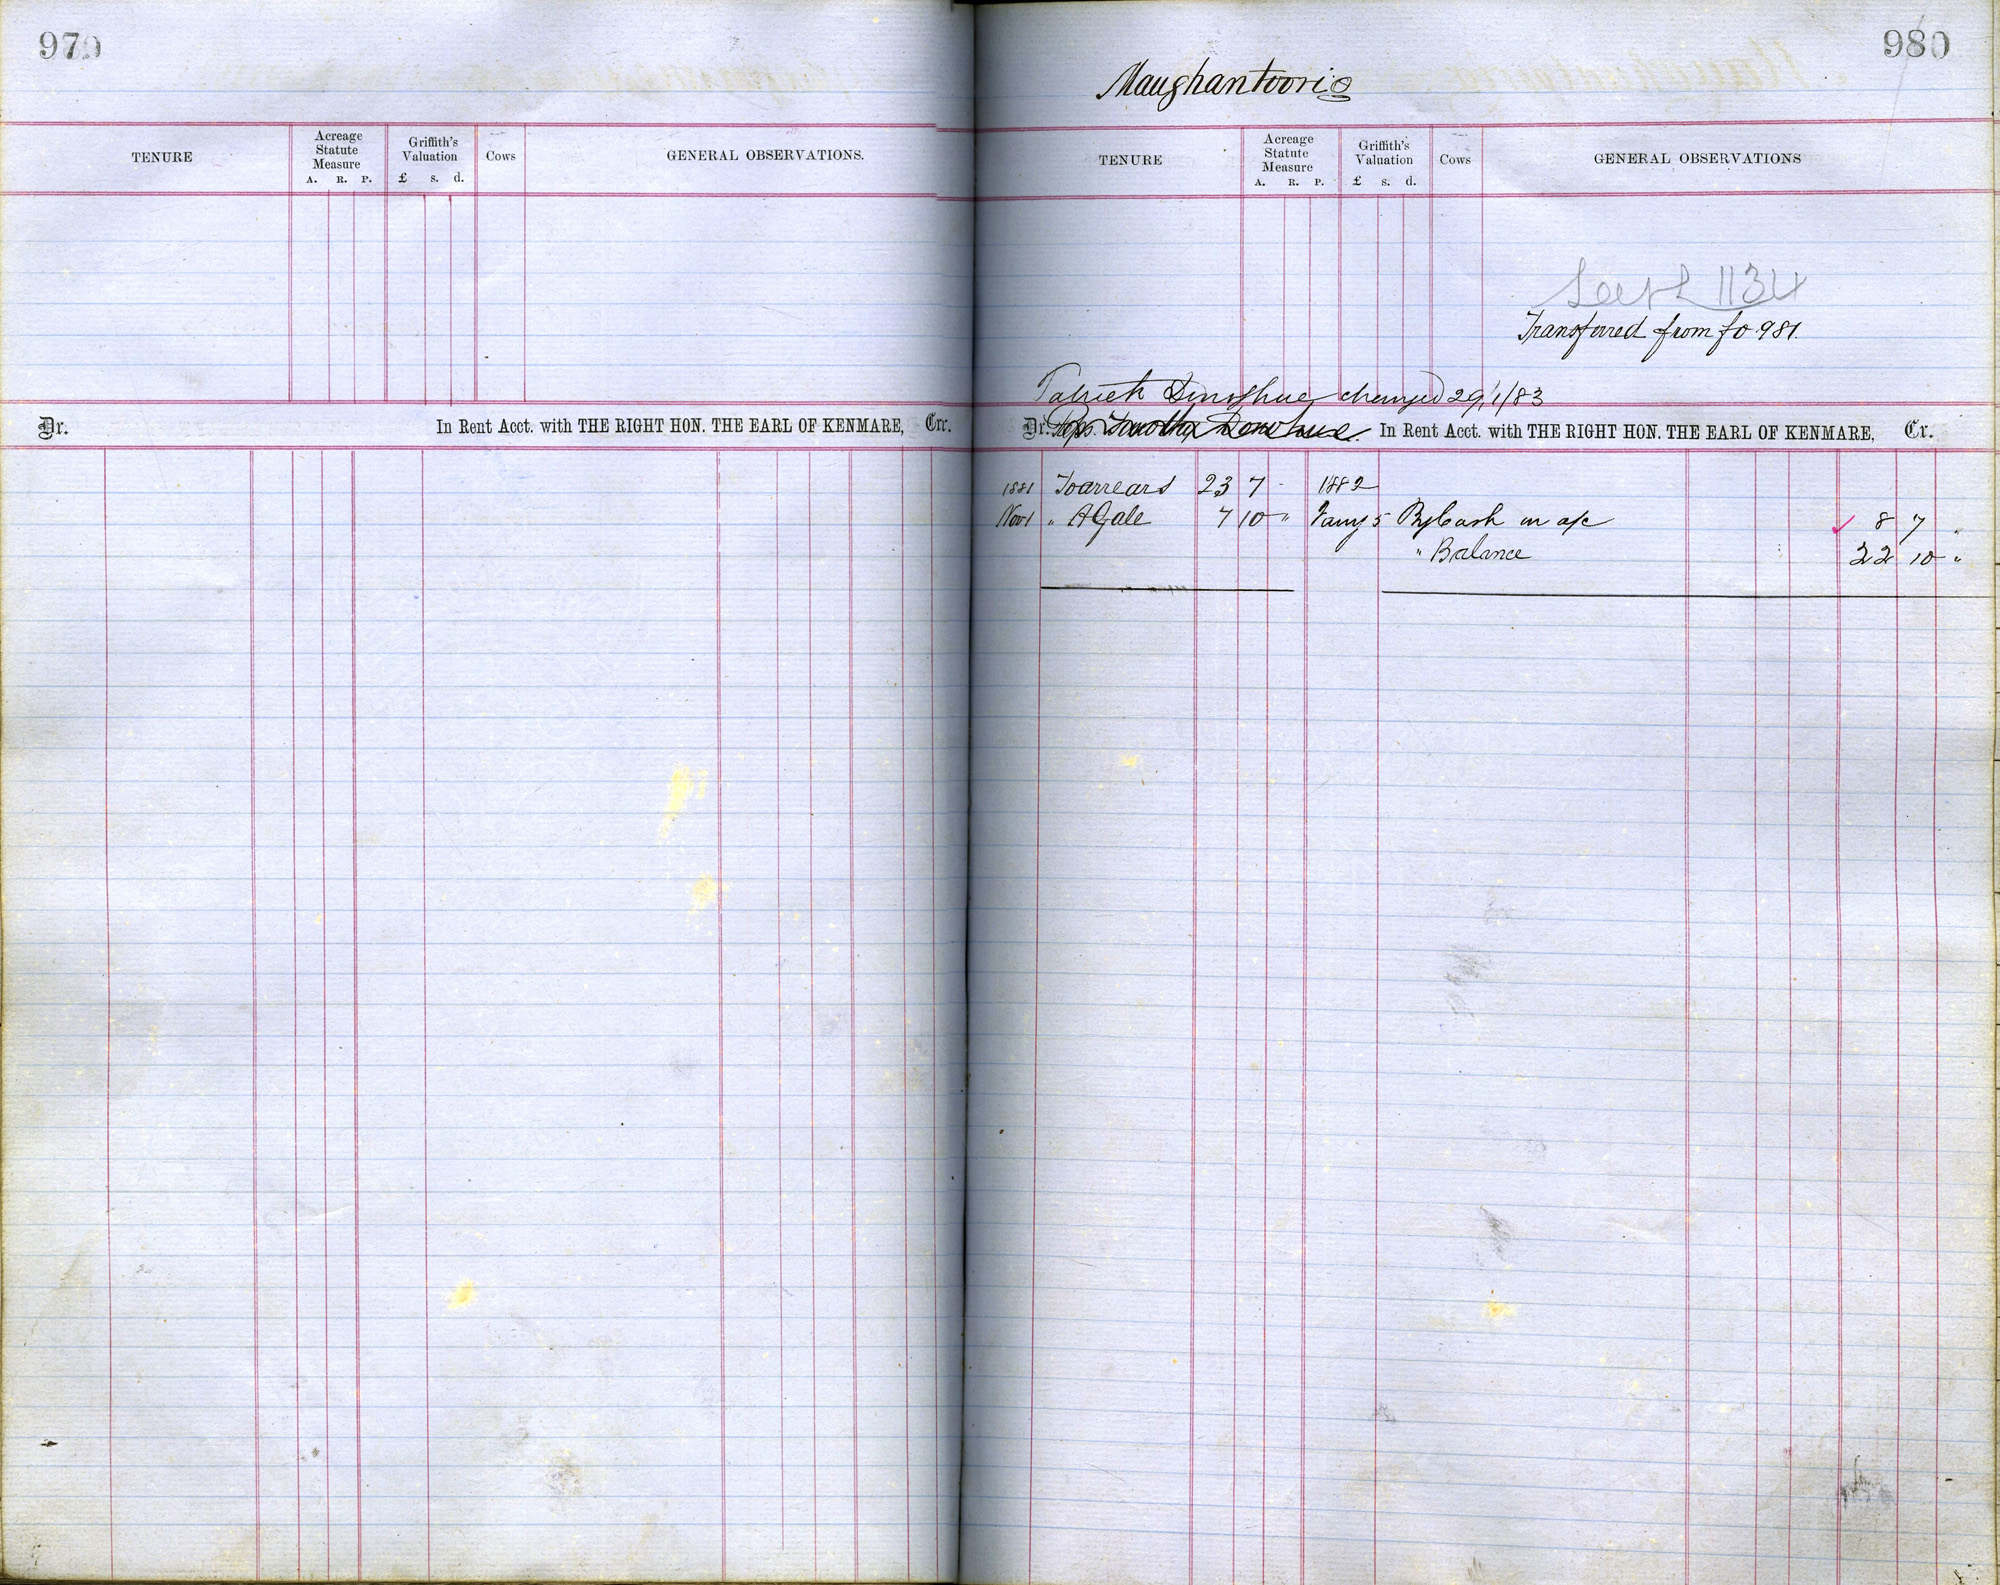 979
TENURE
Acreage Statute Measure
A. R. P.
Griffith's Valuation
£ s. d.
Cows
GENERAL OBSERVATIONS.
Dr. In Rent Acct. with THE RIGHT HON. THE EARL OF KENMARE, Cr.
980
Maughantoorig
TENURE
Acreage Statute Measure
A. R. P.
Griffith's Valuation
£ s. d.
Cows
GENERAL OBSERVATIONS
1134
Transferred from fo 981.
Patrick Donoghue changed 29/1/83
Dr. Reps. Timothy Donohue. In Rent Acct. with THE RIGHT HON. THE EARL OF KENMARE, Cr.
1881 To arrears 23 7 - 1882
Nov 1 " A Gale 7 10 " Jany 5 By Cash on a/c 8 7 "
" Balance 22 10 "